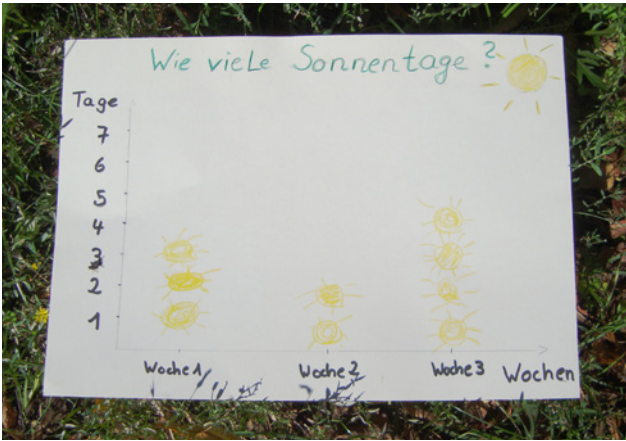 Wie viele Sonnentage?
Tage
7
6
5
4
3
2
1
Woche 1
Woche 2
Woche 3
Wochen